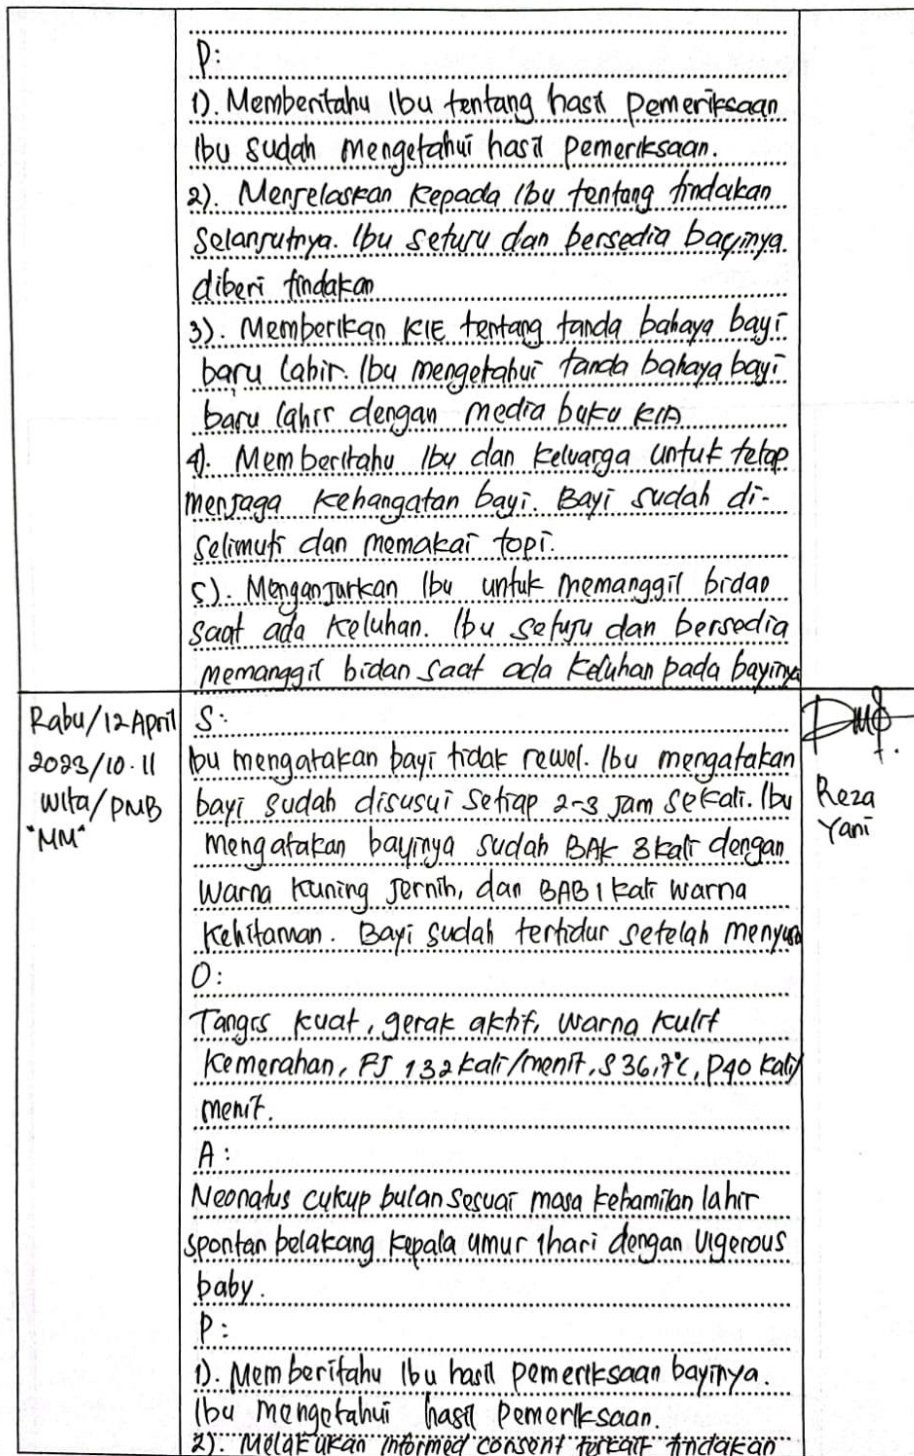 P:
1). Memberitahu Ibu tentang hasil pemeriksaan
Ibu sudah mengetahui hasil pemeriksaan.
2). Menjelaskan kepada Ibu tentang tindakan
selanjutnya. Ibu setuju dan bersedia bayinya
diberi tindakan
3). Memberikan KIE tentang tanda bahaya bayi
baru lahir. Ibu mengetahui tanda bahaya bayi
baru lahir dengan media buku KIA
4). Memberitahu Ibu dan keluarga untuk tetap
menjaga kehangatan bayi. Bayi sudah di-
selimuti dan memakai topi.
5). Menganjurkan Ibu untuk memanggil bidan
saat ada keluhan. Ibu setuju dan bersedia
memanggil bidan saat ada keluhan pada bayinya
Rabu/12 April
2023/10.11
Wita/PMB
"MM"
S:
Ibu mengatakan bayi tidak rewel. Ibu mengatakan
bayi sudah disusui setiap 2-3 jam sekali. Ibu
mengatakan bayinya sudah BAK 3 kali dengan
warna kuning jernih, dan BAB 1 kali warna
kehitaman. Bayi sudah tertidur setelah menyusu
O:
Tangis kuat, gerak aktif, warna kulit
kemerahan, FJ 132 kali/menit, S 36,7°C, P40 kali/
menit.
A:
Neonatus cukup bulan sesuai masa kehamilan lahir
spontan belakang kepala umur 1 hari dengan vigerous
baby.
P:
1). Memberitahu Ibu hasil pemeriksaan bayinya.
Ibu mengetahui hasil pemeriksaan.
2). Melakukan informed consent terkait tindakan
Reza
Yani